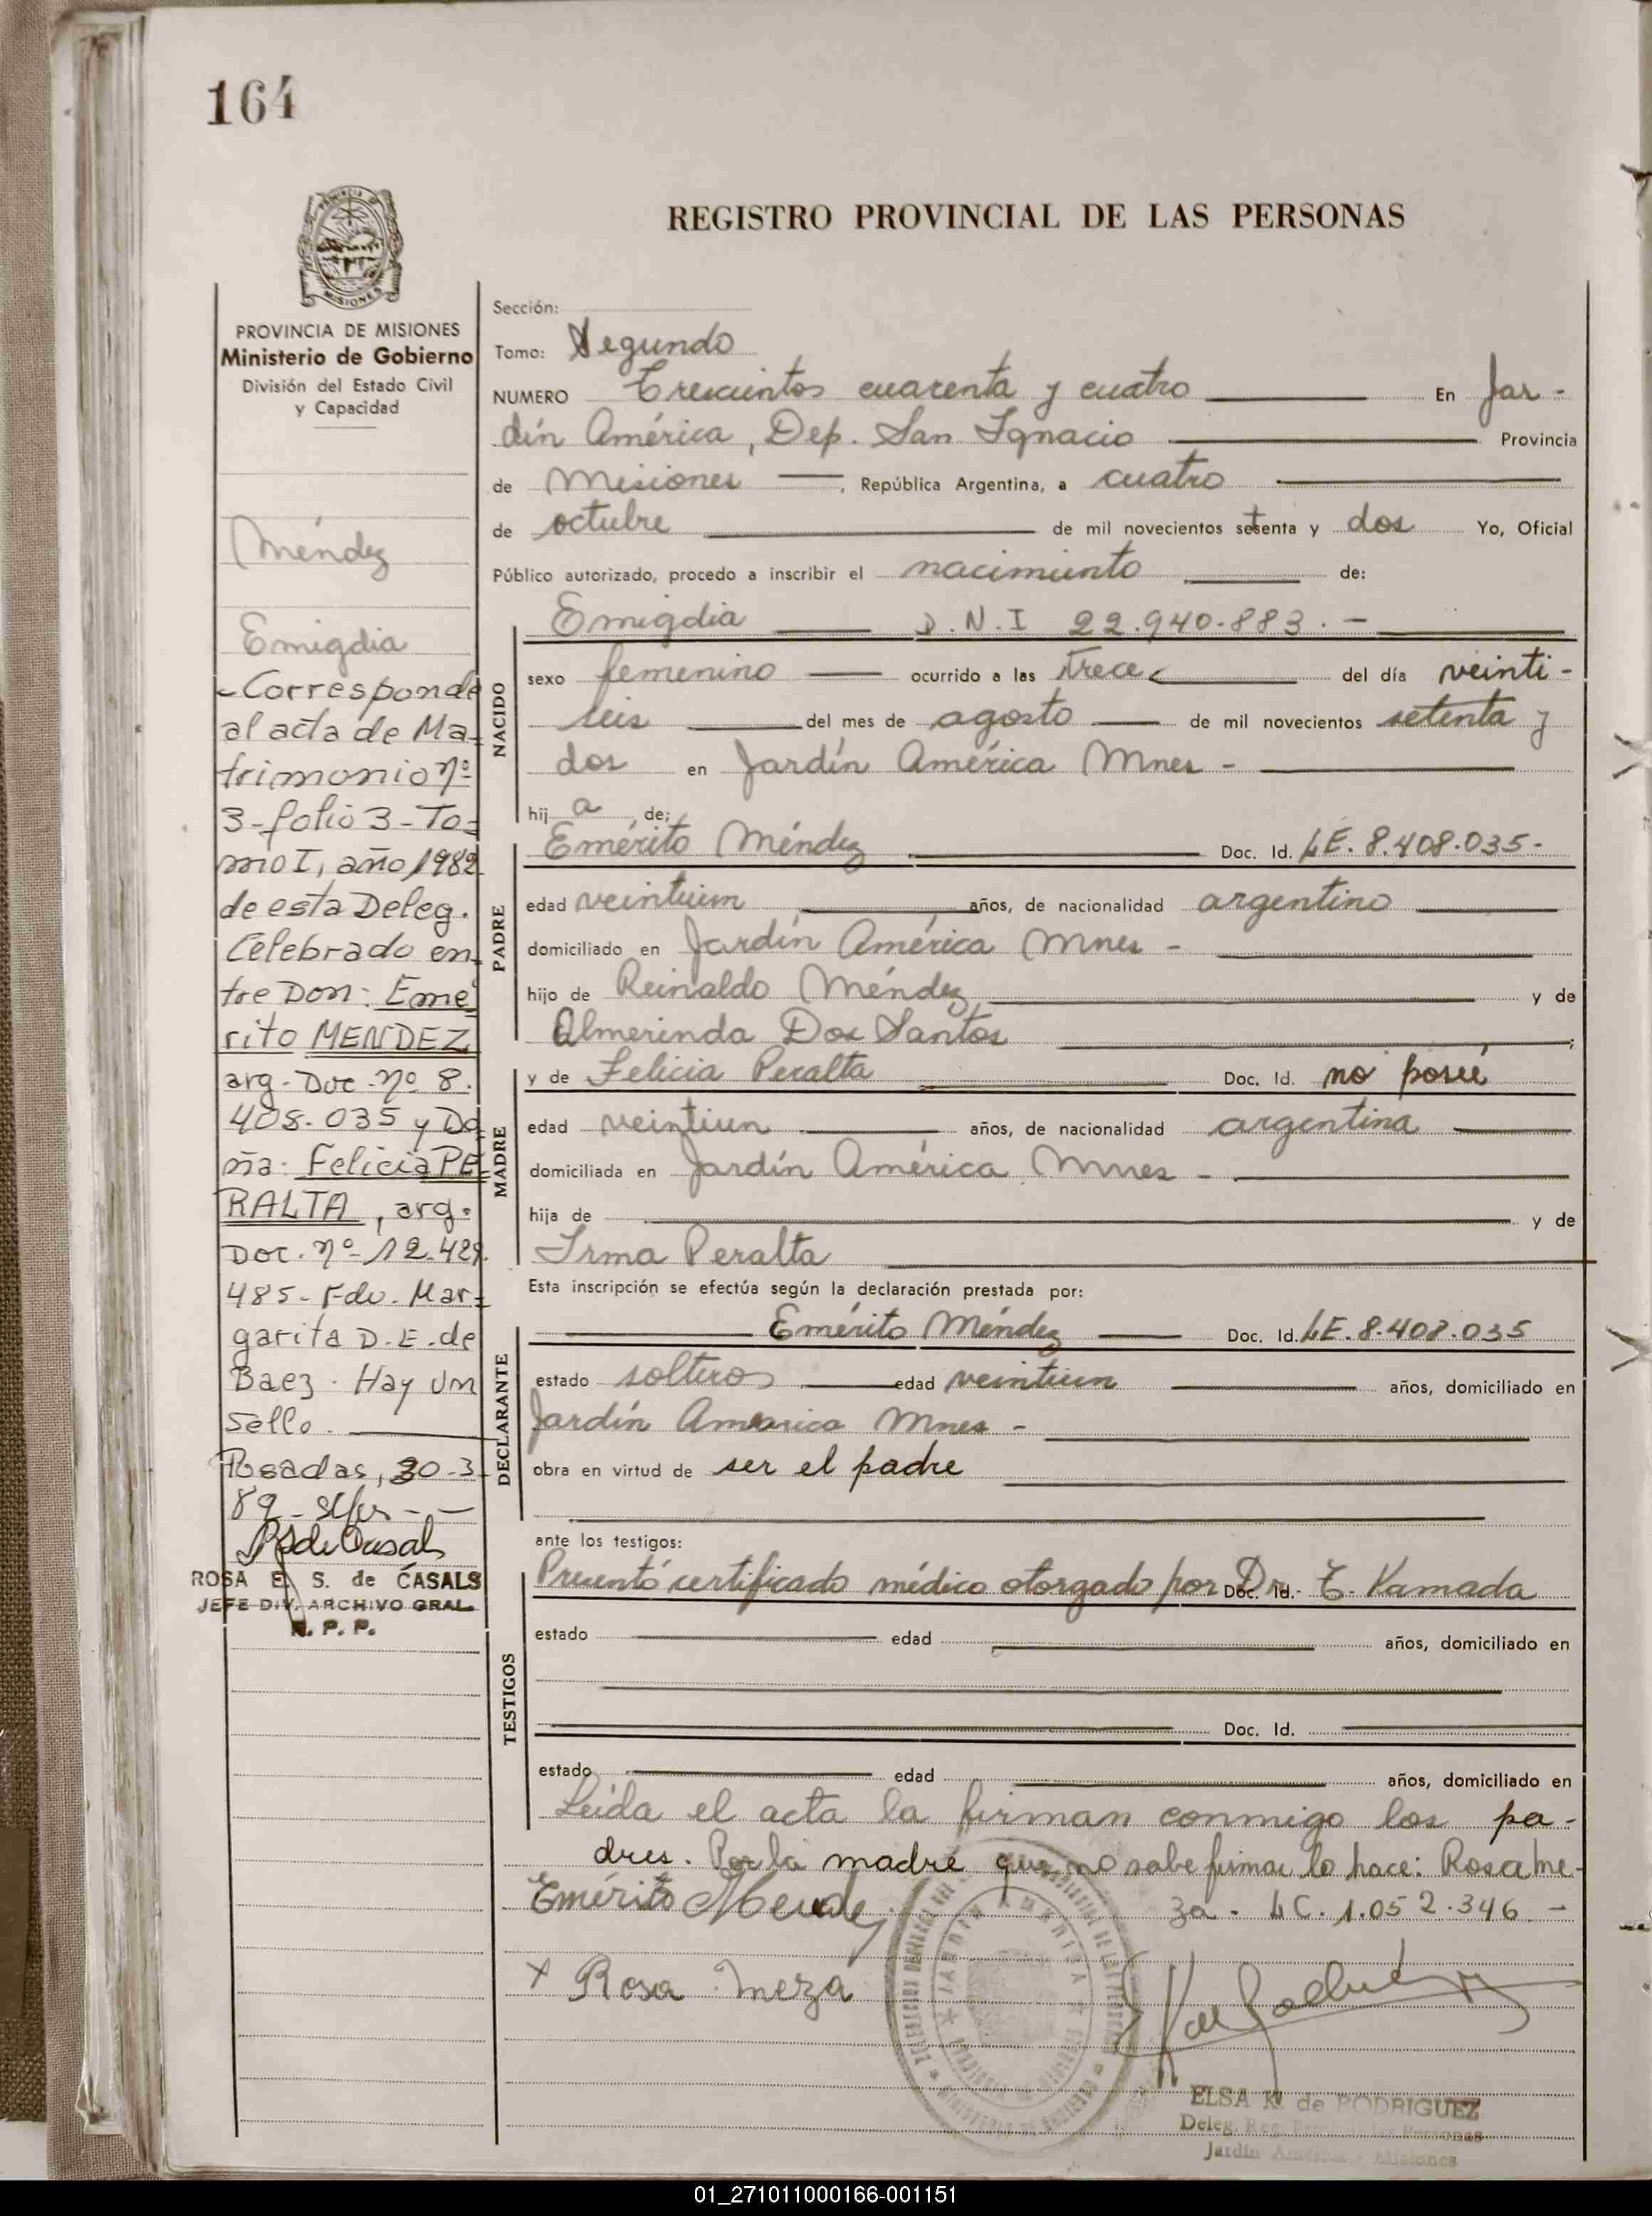 164
REGISTRO PROVINCIAL DE LAS PERSONAS
MISIONES
PROVINCIA DE MISIONES
Ministerio de Gobierno
División del Estado Civil
y Capacidad
Méndez
Emigdia
- Corresponde
al acta de Ma-
trimonio nº
3-folio 3-To-
mo I, año 1982
de esta Deleg.
Celebrado en-
tre Don: Eme
rito MENDEZ
arg. Doc. nº 8.
408.035 y Do
ña: Felicia PE
RALTA, arg.
Doc. nº 12.429.
485- Fdo. Mar-
garita D.E. de
Baez. Hay un
sello.
Posadas, 30-3-
89
ROSA E. S. de CASALS
JEFE DIV. ARCHIVO GRAL.
R. P. P.
Sección:
Tomo: Segundo
NUMERO Trescientos cuarenta y cuatro En Jar-
dín América, Dep. San Ignacio Provincia
de Misiones, República Argentina, a cuatro
de octubre de mil novecientos setenta y dos Yo, Oficial
Público autorizado, procedo a inscribir el nacimiento de:
NACIDO
Emigdia D.N.I 22.940.883.-
sexo femenino ocurrido a las trece del día veinti-
seis del mes de agosto de mil novecientos setenta y
dos en Jardín América Mnes -
hij a de;
PADRE
Emérito Méndez Doc. Id. LE. 8.408.035-
edad veintiun años, de nacionalidad argentino
domiciliado en Jardín América Mnes -
hijo de Reinaldo Méndez y de
Almerinda Dos Santos ;
MADRE
y de Felicia Peralta Doc. Id. no posee
edad veintiun años, de nacionalidad argentina
domiciliada en Jardín América Mnes -
hija de y de
Irma Peralta
Esta inscripción se efectúa según la declaración prestada por:
DECLARANTE
Emérito Méndez Doc. Id. LE. 8.408.035
estado soltero edad veintiun años, domiciliado en
Jardín America Mnes -
obra en virtud de ser el padre
ante los testigos:
TESTIGOS
Presentó certificado médico otorgado por Doc. Id. Dr. T. Kamada
estado edad años, domiciliado en
Doc. Id.
estado edad años, domiciliado en
Leida el acta la firman conmigo los pa-
dres. Por la madre que no sabe firmar lo hace: Rosa Me-
za - LC. 1.052.346 -
Emérito Mendez
x Rosa Meza
JARDIN AMERICA
ELSA K. de RODRIGUEZ
Deleg. Reg. Prov. de las Personas
Jardín América - Misiones
01_271011000166-001151